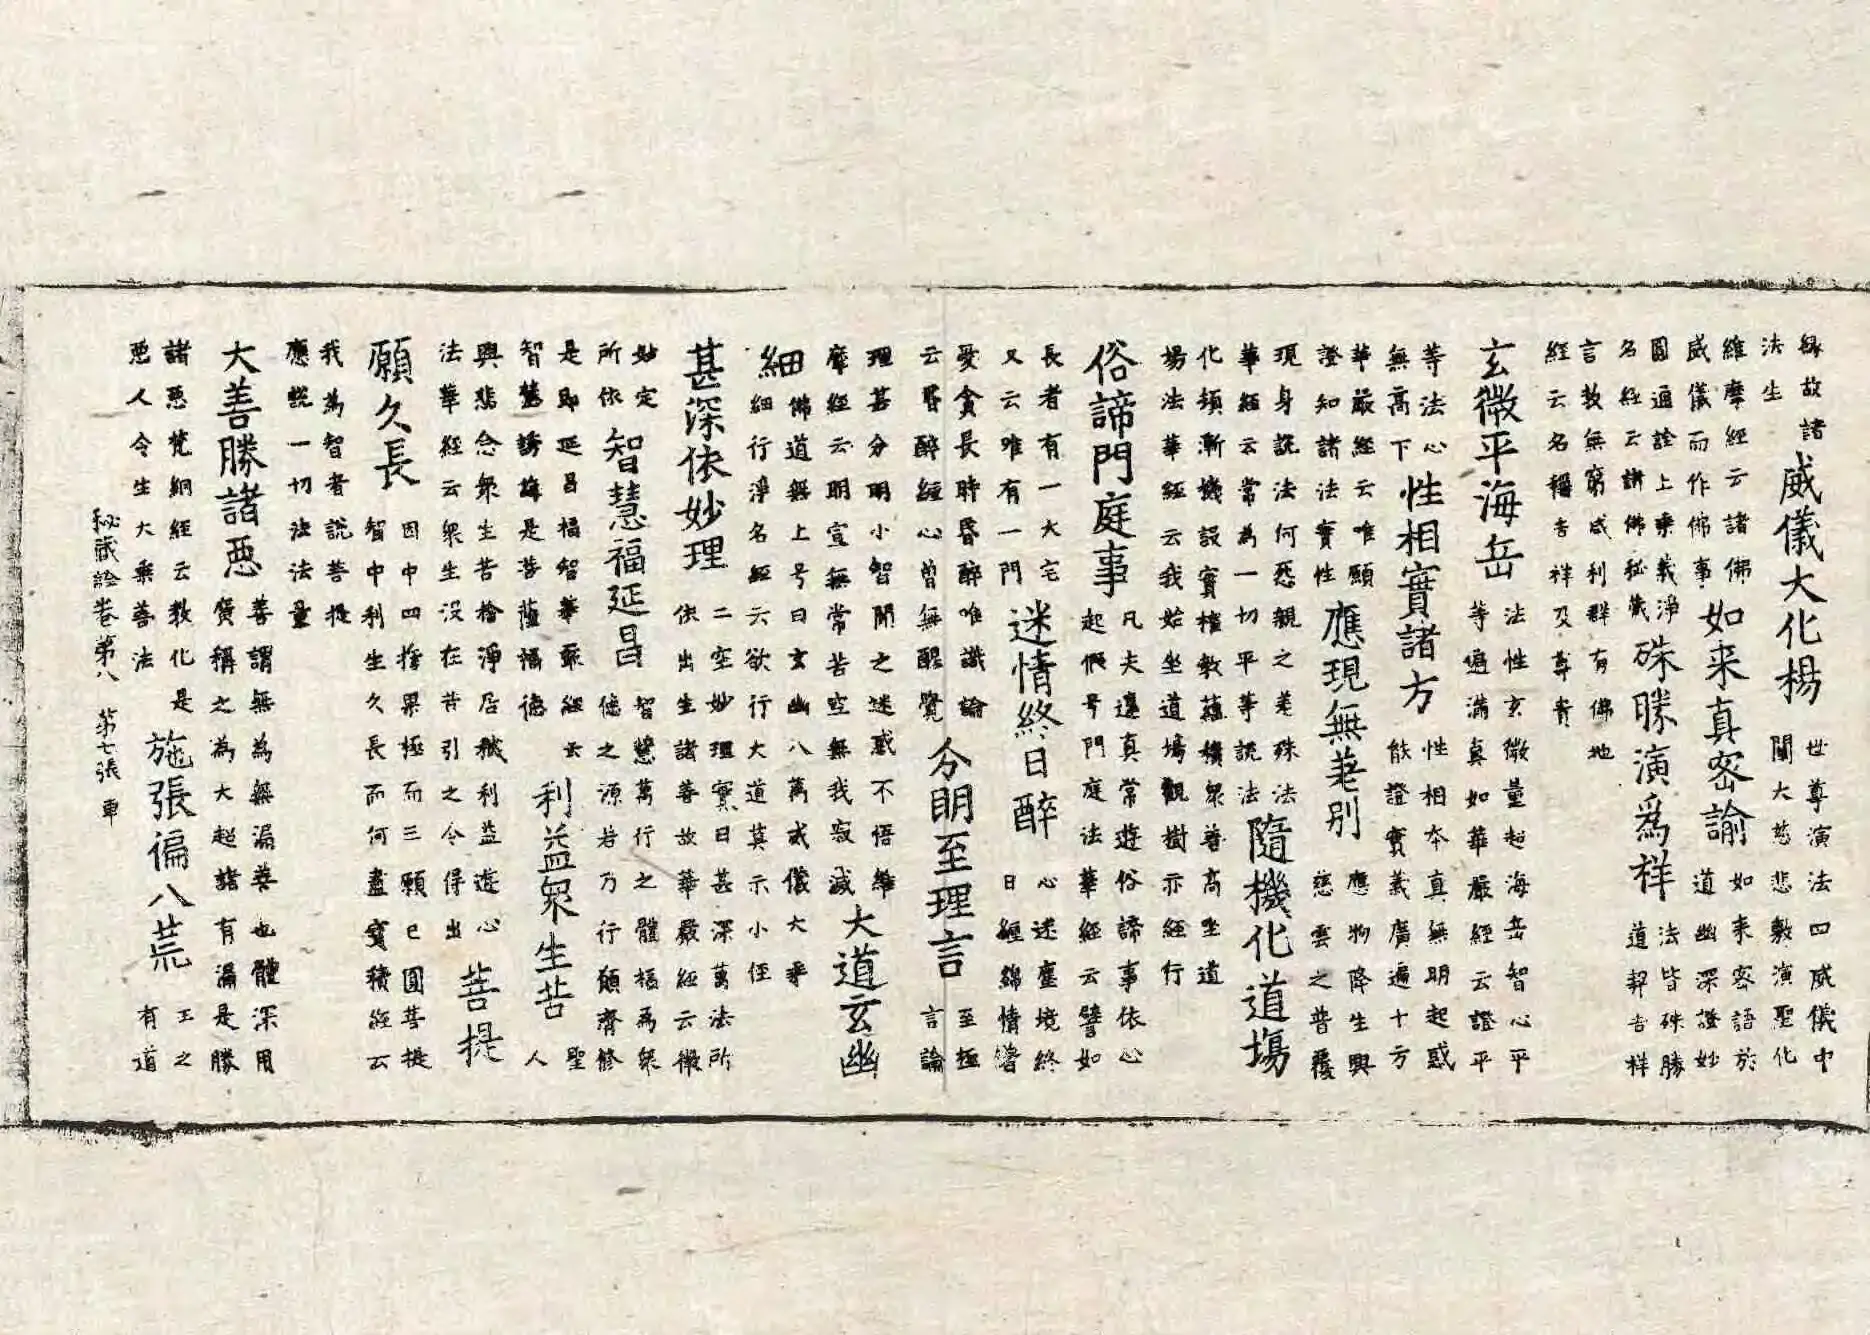 縁故諸
法生
威儀大化揚
世尊演法四威儀中
闡大慈悲敷演聖化
維摩經云諸佛
威儀而作佛事
如来真密諭
如来密語於
道幽深證妙
圓通詮上乘義淨
名經云講佛秘藏
殊勝演爲祥
法皆殊勝
道契吉祥
言教無窮咸利群有佛地
經云名稱吉祥及尊貴
玄微平海岳
法性玄微量起海岳智心平
等遍滿真如華嚴經云證平
等法心
無高下
性相實諸方
性相本真無明起惑
能證實義廣遍十方
華嚴經云唯願
證知諸法實性
應現無差別
應物降生興
慈雲之普覆
現身說法何悉親之差殊法
華經云常為一切平等說法
隨機化道場
化頓漸機設實權教蘊積衆善高坐道
場法華經云我始坐道場觀樹亦經行
俗諦門庭事
凡夫邊真常遊俗諦事依心
起假号門庭法華經云譬如
長者有一大宅
又云唯有一門
迷情終日醉
心迷塵境終
日纏綿情嘗
愛貪長時昏醉唯識論
云昏醉經心曾無醒覺
分明至理言
至極
言論
理甚分明小智聞之迷惑不悟維
摩經云明宣無常苦空無我寂滅
大道玄幽
細
佛道無上号曰玄幽八萬威儀大乎
細細行淨名經云欲行大道莫示小徑
甚深依妙理
二空妙理實曰甚深萬法所
依出生諸善故華嚴經云微
妙定
所依
智慧福延昌
智慧萬行之體福為衆
德之源若乃行願齊修
是即延昌福智華聚經云
智慧誘誨是菩薩福德
利益衆生苦
聖
人
興悲念衆生苦捨淨居穢利益遊心
法華經云衆生沒在苦引之令得出
菩提
願久長
因中四捨果極而三願已圓菩提
智中利生久長而何盡寶積經云
我為智者說菩提
應說一切法法量
大善勝諸惡
善謂無為無漏善也體深用
廣稱之為大起諸有漏是勝
諸惡梵網經云教化是
惡人令生大乘善法
施張徧八荒
王之
有道
秘藏詮卷第八 第七張 車